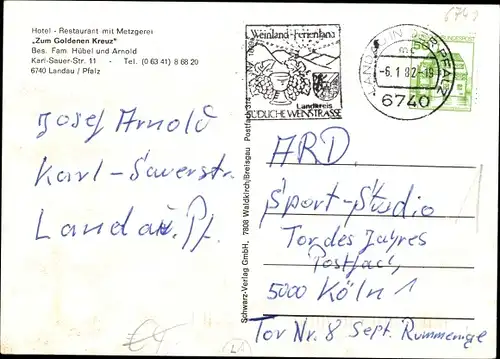 Hotel - Restaurant mit Metzgerei
„Zum Goldenen Kreuz"
Bes. Fam Hübel und Arnold
Karl-Sauer-Str. 11 - Tel. (0 63 41) 8 68 20
6740 Landau / Pfalz
Josef Arnold
Karl-Sauerstr.
Landau. Pf.
Schwarz-Verlag GmbH., 7808 Waldkirch/Breisgau Postfach 314
Weinland-Ferienland
Landkreis
SÜDLICHE WEINSTRASSE
LANDAU IN DER PFALZ
-6.1.82-19
6740
50
ARD.
Sport-Studio
Tor des Jahres
Postfach
5000 Köln 1
Tor Nr. 8 Sept. Rummenige